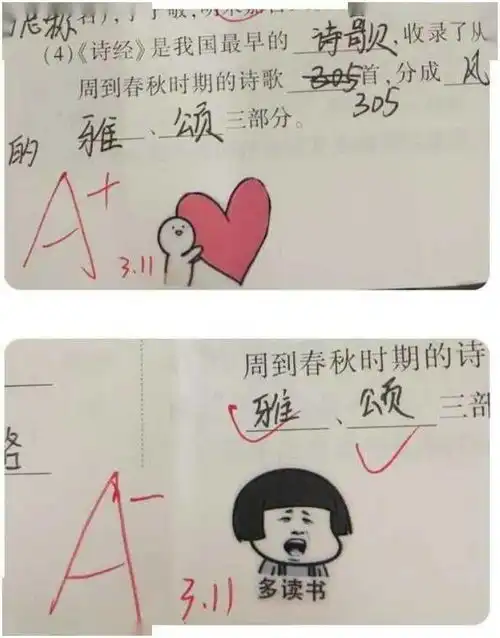 (4)《诗经》是我国最早的 诗歌,收录了从
周到春秋时期的诗歌 305首,分成 风
305
的 雅、颂三部分。
A+
3.11
周到春秋时期的诗
雅、颂三部
A-
3.11
多读书